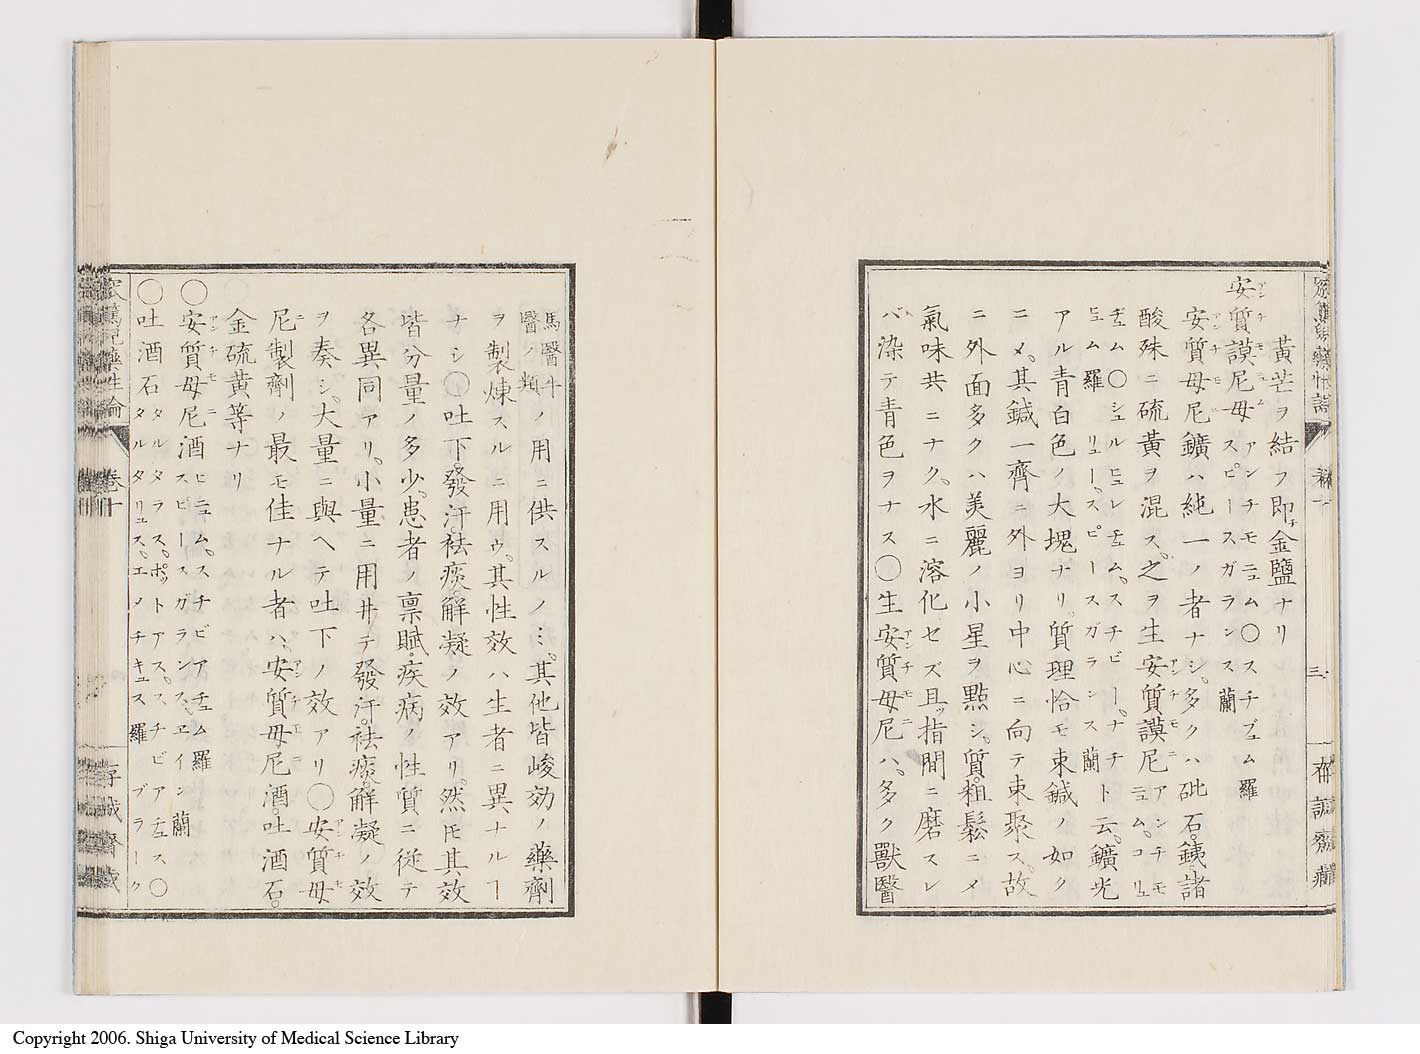 黃芒ヲ結フ即チ金鹽ナリ
安質謨尼母アンチモニュム アンチモニュム○スチブュム羅 スピースガランス蘭
安質母尼アンチモニ鑛ハ純一ノ者ナシ。多クハ砒石。銕。諸
酸殊ニ硫黃ヲ混ス。之ヲ生安質謨尼アンチモニ アンチモニュム。コリュ
チュム○シェルヒュレチュム。スチビー。ナチ ヒュム羅 リュー。スピースガランス蘭ト云。鑛光
アル青白色ノ大塊ナリ。質理恰モ束鍼ノ如ク
ニメ。其鍼一齊ニ外ヨリ中心ニ向テ束聚ス。故
ニ外面多クハ美麗ノ小星ヲ點シ。質粗鬆ニメ
氣味共ニナク。水ニ溶化セズ且ツ指間ニ磨スレ
バ染テ青色ヲナス○生安質母尼アンチモニハ。多ク獸醫
馬醫牛醫ノ類ノ用ニ供スルノミ。其他皆峻効ノ藥劑
ヲ製煉スルニ用ウ。其性效ハ生者ニ異ナルヿ
ナシ○吐下。發汗。祛痰。解凝ノ效アリ。然𪜈其效
皆分量ノ多少。患者ノ禀賦。疾病ノ性質ニ従テ
各異同アリ。小量ニ用井テ發汗。祛痰。解凝ノ效
ヲ奏シ。大量ニ與ヘテ吐下ノ效アリ○安質母アンチモ
尼ニ製劑ノ最モ佳ナル者ハ。安質母尼アンチモニ酒。吐酒石。
金硫黄等ナリ
○安質母尼アンチモニ酒 ヒニュム。スチビアチュム羅 スピースガランス。ヱイン蘭
○吐酒石 タルタラス。ポットアス。スチビアチュス○ タルタリュス。エメチキュス羅 ブラーク
卷十
三